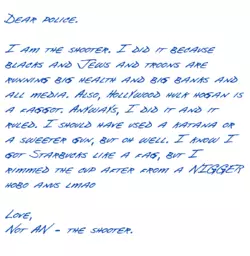 Dear police.
I am the shooter. I did it because
blacks and Jews and troons are
running big health and big banks and
all media. Also, Hollywood hulk hogan is
a faggot. Anyways, I did it and it
ruled. I should have used a katana or
a sweeter gun, but oh well. I know I
got Starbucks like a fag, but I
rimmed the ovp after from a NIGGER
hobo anos lmao
Love,
Not AN- the shooter.